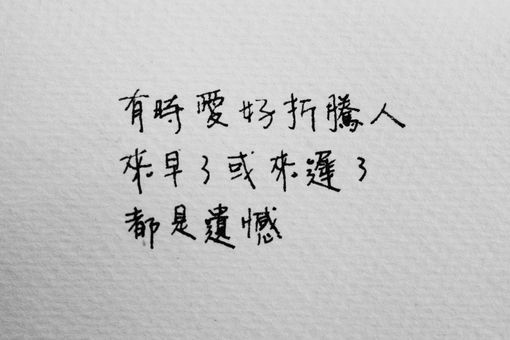 有時愛好折騰人
來早了或來遲了
都是遺憾